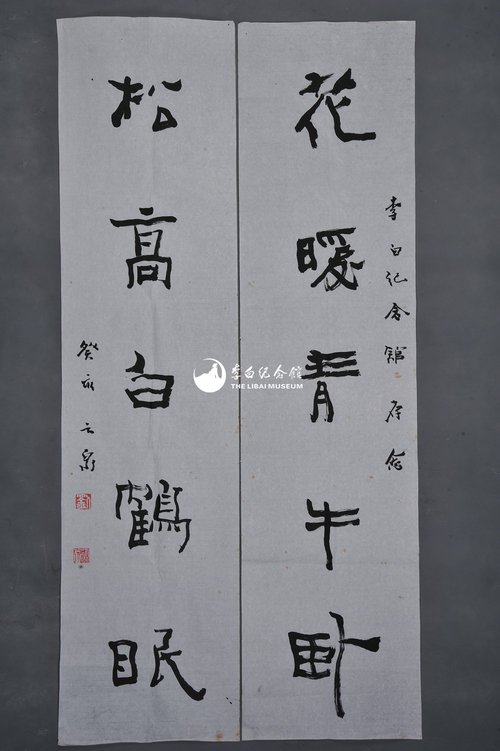 花暖青牛卧
李白纪念馆
松高白鹤眠
癸亥
李白纪念馆
THE LIBAI MUSEUM